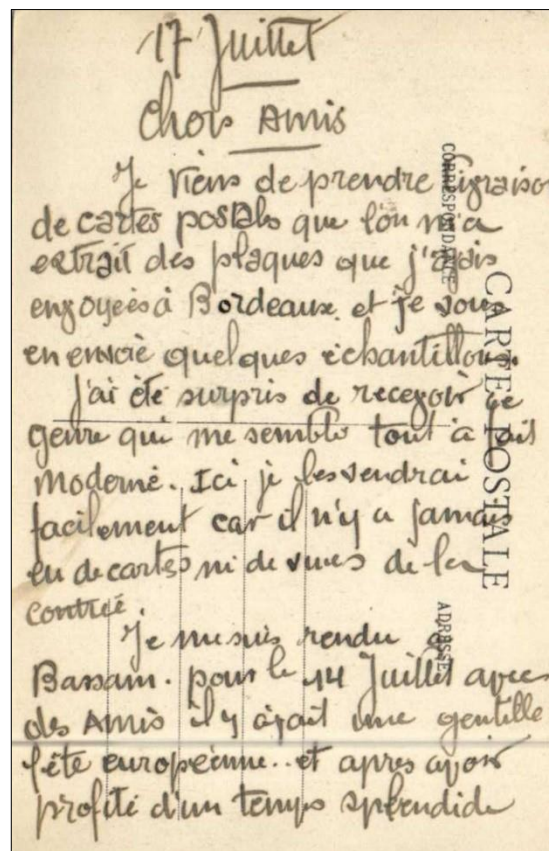 17 Juillet
Chers Amis
Je viens de prendre livraison
de cartes postales que l'on m'a
extrait des plaques que j'avais
envoyées à Bordeaux. et je vous
en envoie quelques échantillons.
j'ai été surpris de recevoir ce
genre qui me semble tout à fait
moderne. Ici je les vendrai
facilement car il n'y a jamais
eu de cartes ni de vues de la
contrée.
Je me suis rendu à
Bassam. pour le 14 Juillet avec
des Amis il y avait une gentille
fête européenne.. et apres avoir
profité d'un temps splendide
CORRESPONDANCE
CARTE POSTALE
ADRESSE